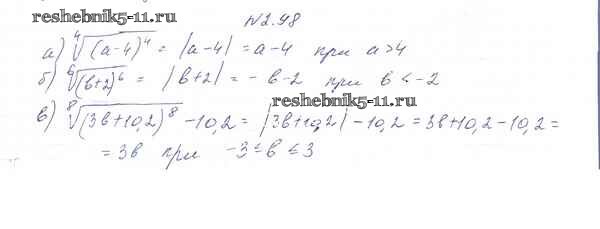 reshebnik5-11.ru
№2.98
а) ∜(a-4)⁴ = |a-4| = a-4 при a>4
б) ⁶√(b+2)⁶ = |b+2| = -b-2 при b<-2
reshebnik5-11.ru
в) ⁸√(3b+10,2)⁸ -10,2 = |3b+10,2| -10,2 = 3b+10,2-10,2 =
= 3b при -3≤b≤3